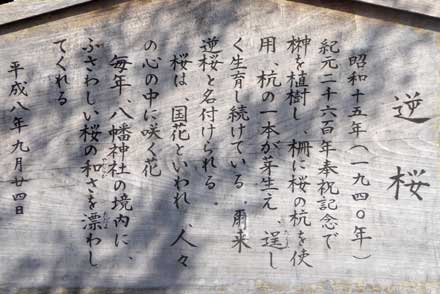 逆桜
昭和十五年(一九四〇年)
紀元二千六百年奉祝記念で
榊を植樹し、柵に桜の杭を使
用、杭の一本が芽生え 逞し
く生育し続けている。爾来
逆桜と名付けられる。
桜は、国花といわれ、人々
の心の中に咲く花
毎年、八幡神社の境内に、
ふさわしい桜の和さを漂わし
てくれる
平成八年九月廿四日